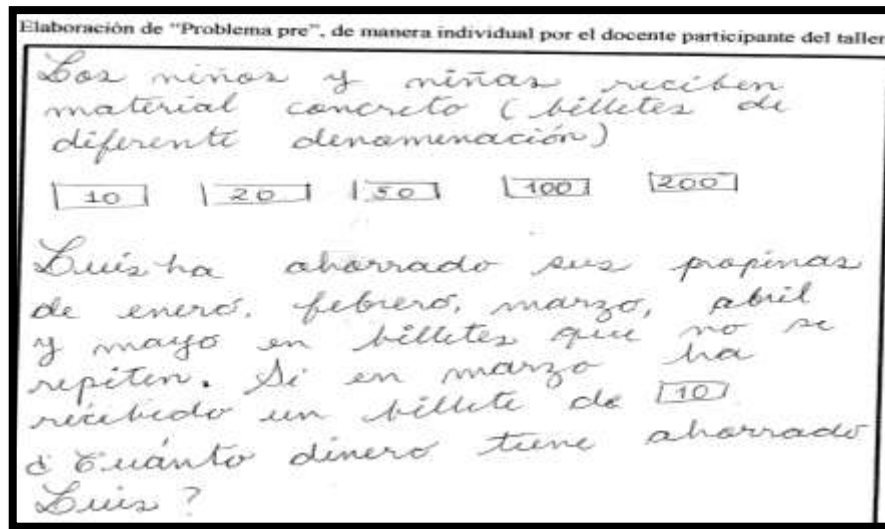 Elaboración de "Problema pre", de manera individual por el docente participante del taller
Los niños y niñas reciben
material concreto (billetes de
diferente denominación)
10 20 50 100 200
Luis ha ahorrado sus propinas
de enero, febrero, marzo, abril
y mayo en billetes que no se
repiten. Si en marzo ha
recibido un billete de 10
¿Cuánto dinero tiene ahorrado
Luis?